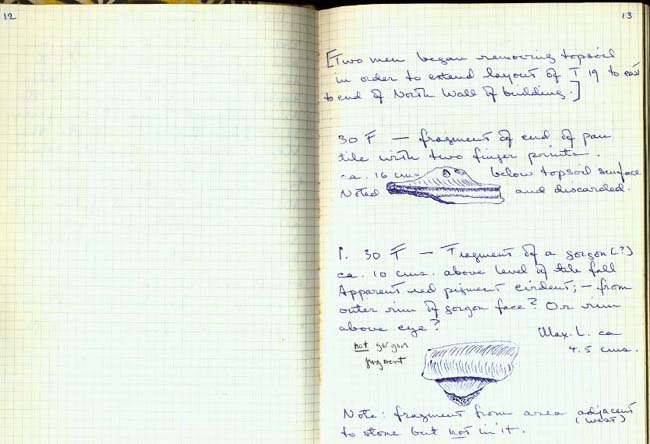 12
13
[Two men began removing topsoil
in order to extend layout of T 19 to east
to end of North Wall of building.]
30 F — fragment of end of pan
tile with two finger prints.
ca. 16 cms below topsoil surface
Noted and discarded.
1. 30 F — Fragment of a gorgon (?)
ca. 10 cms. above level of tile fall
Apparent red pigment evident; — from
outer rim of gorgon face? Or rim
above eye?
Max. L. ca
4.5 cms.
not gorgon
fragment
Note: fragment from area adjacent
(west)
to stone but not in it.